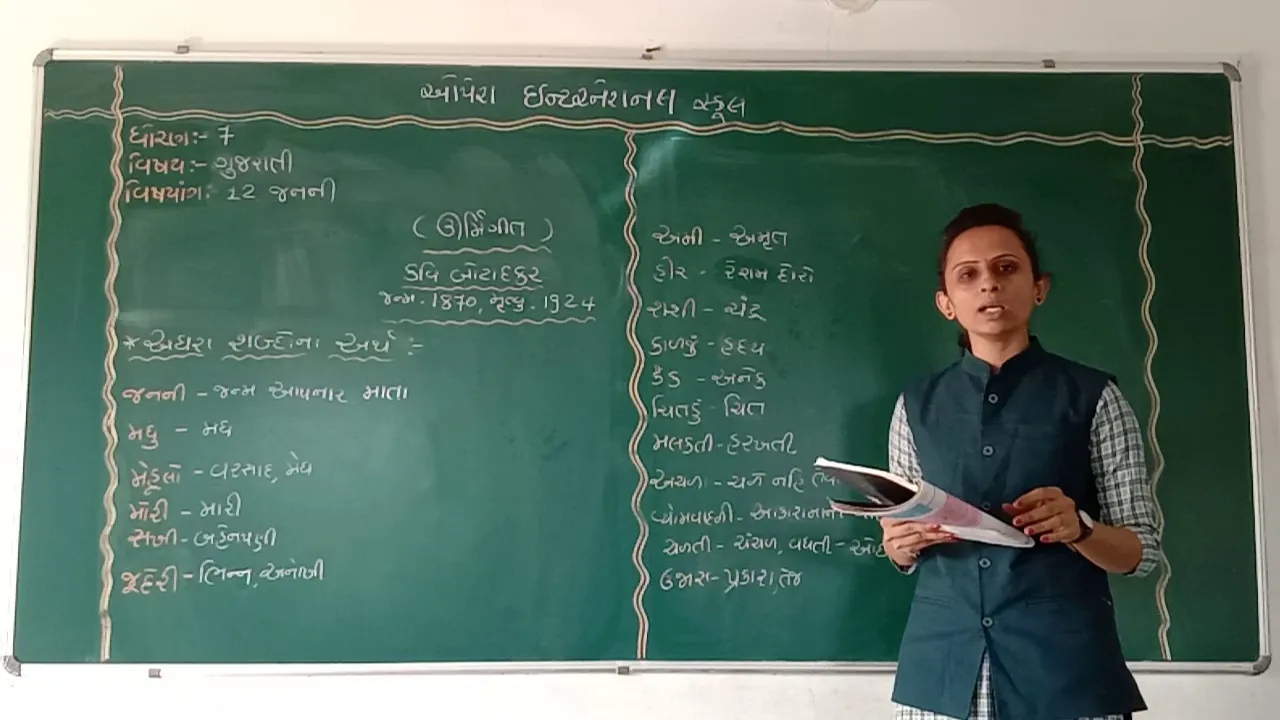 ઓપેરા ઇન્ટરનેશનલ સ્કૂલ
ધોરણ:- 7
વિષય:- ગુજરાતી
વિષયાંગ: 12 જનની
(ઊર્મિગીત)
કવિ બોટાદકર
જન્મ. 1870, મૃત્યુ. 1924
* અઘરા શબ્દોના અર્થ :-
જનની - જન્મ આપનાર માતા
મધુ - મધ
મેહૂલો - વરસાદ, મેઘ
મોરી - મારી
સખી - બહેનપણી
જૂદેરી - ભિન્ન, અનોખી
અમી - અમૃત
હીર - રેશમ દોરો
શશી - ચંદ્ર
કાળજું - હૃદય
કૈંક - અનેક
ચિતડું - ચિત
મલકતી - હરખતી
અચળા - ચળે નહિ
વ્યોમવાણી - આકાશની
ચળતી - ચંચળ, વધતી -
ઉજાસ - પ્રકાશ, તેજ